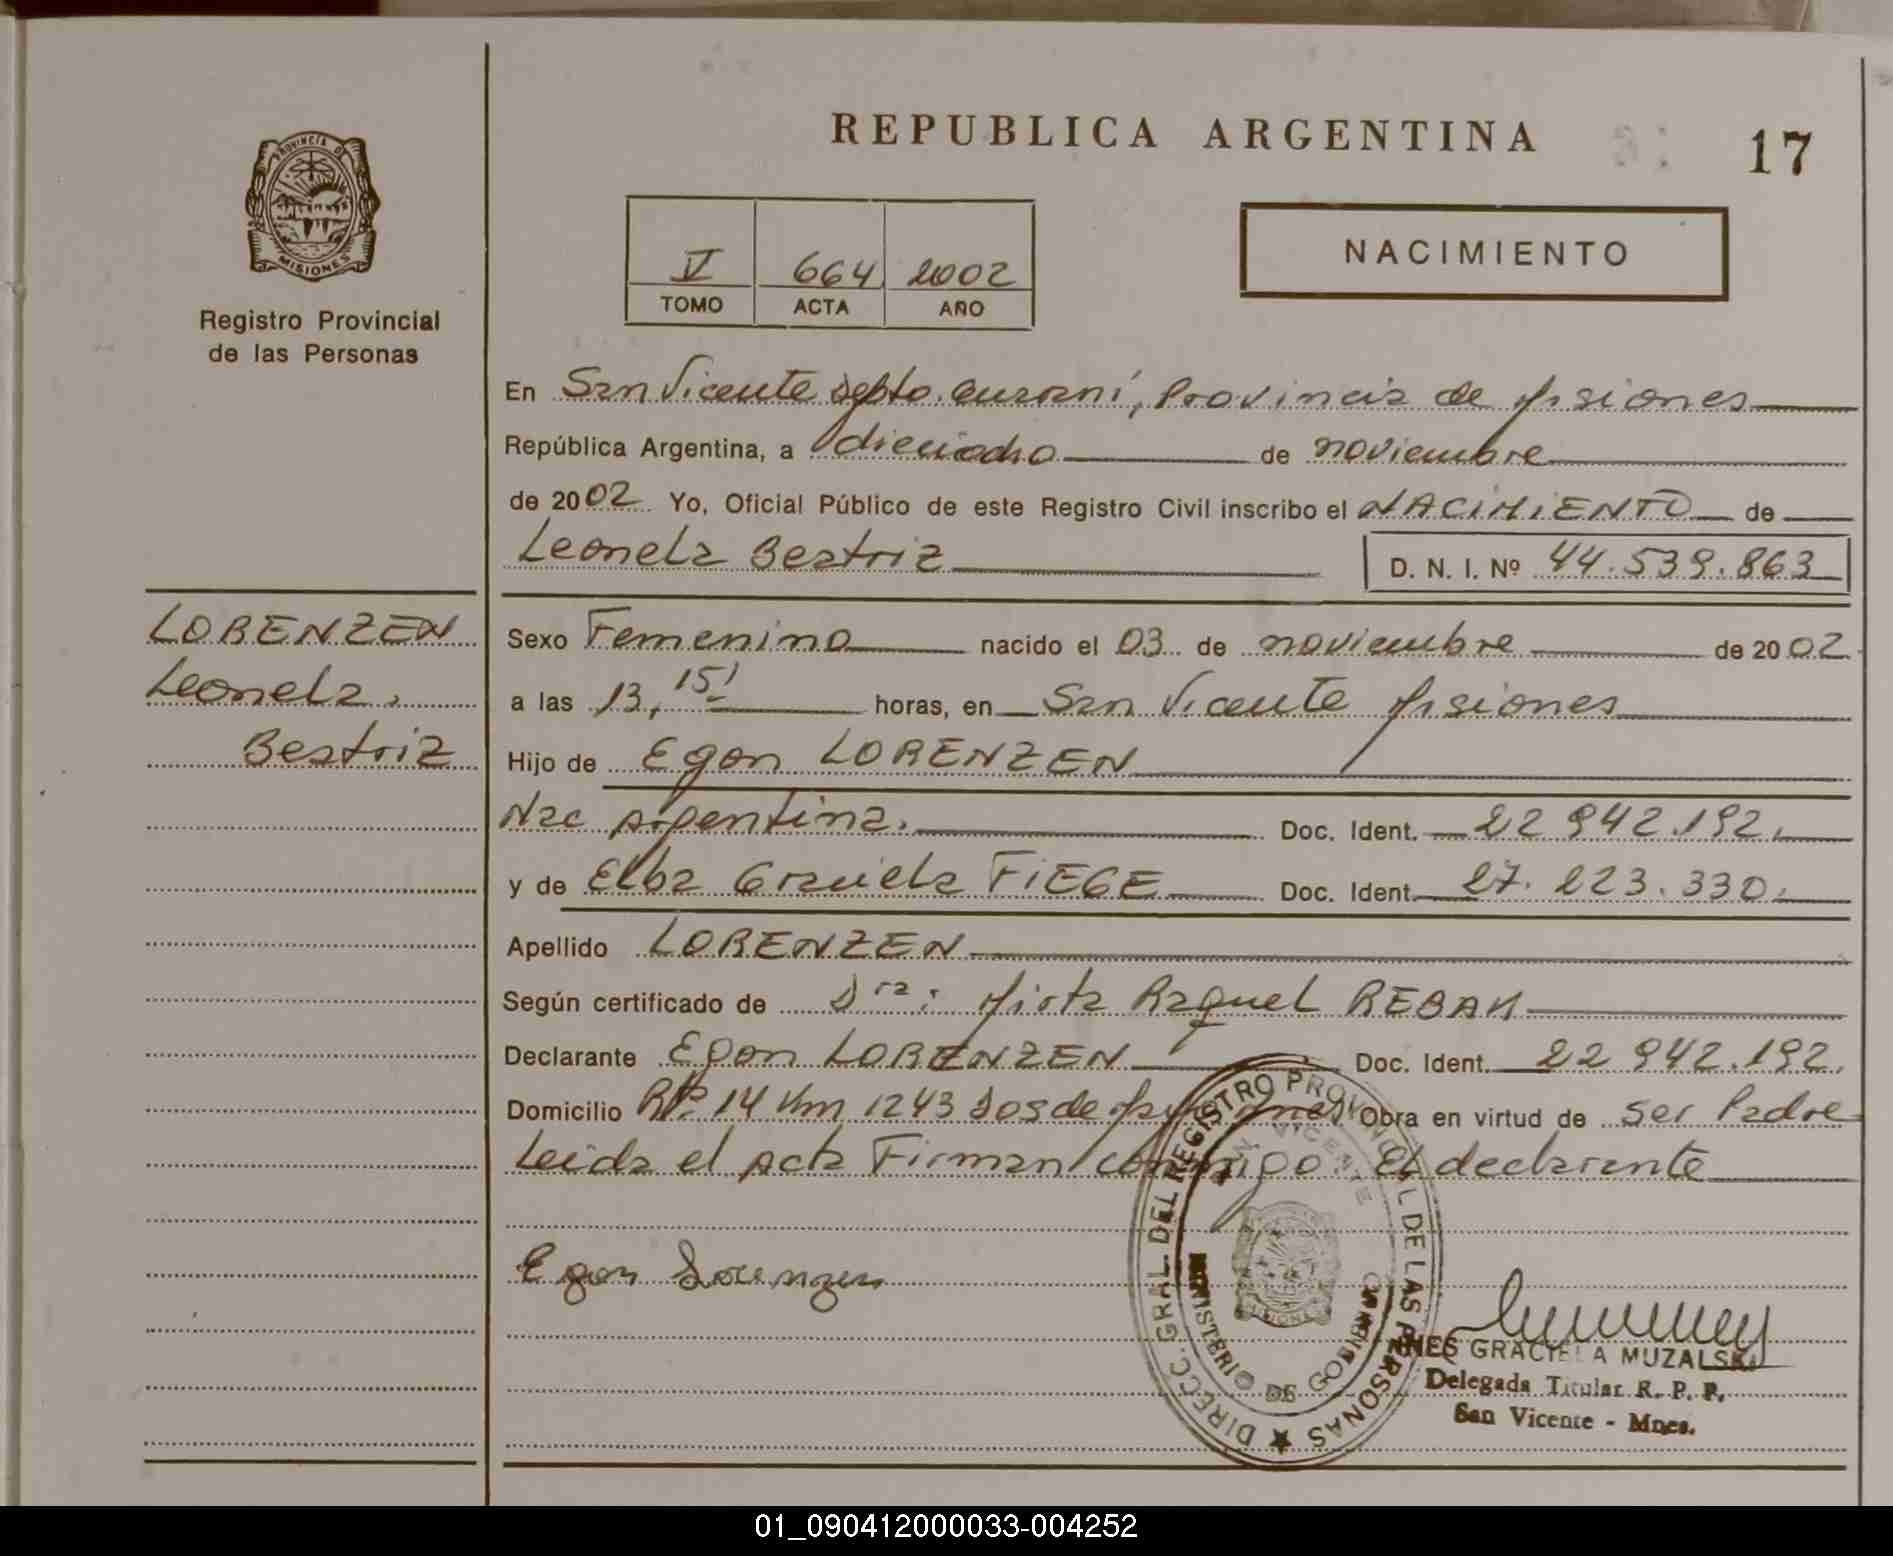 REPUBLICA ARGENTINA
17
PROVINCIA DE
MISIONES
Registro Provincial
de las Personas
V 664 2002
TOMO ACTA AÑO
NACIMIENTO
En San Vicente Depto. Guaraní, Provincia de Misiones
República Argentina, a dieciocho de noviembre
de 2002 Yo, Oficial Público de este Registro Civil inscribo el NACIMIENTO de
Leonela Beatriz D. N. I. Nº 44.539.863
LORENZEN
Leonela
Beatriz
Sexo Femenino nacido el 03 de noviembre de 2002
a las 13,15' horas, en San Vicente Misiones
Hijo de Egon LORENZEN
Nac Argentina. Doc. Ident. 22 942.192.
y de Elba Graciela FiEGE Doc. Ident. 27.223.330.
Apellido LORENZEN
Según certificado de Dra: Mirta Raquel REBAK
Declarante Egon LORENZEN Doc. Ident. 22 942.192.
Domicilio 14 Km 1243 Dos de Misiones Obra en virtud de ser Padre
Leida el Acta Firman conmigo El declarante
Egon Lorenzen
DIRECC. GRAL. DEL REGISTRO PROVINCIAL DE LAS PERSONAS
SAN VICENTE
MINISTERIO DE GOBIERNO
INES GRACIELA MUZALSKI
Delegada Titular R. P. P.
San Vicente - Mnes.
01_090412000033-004252